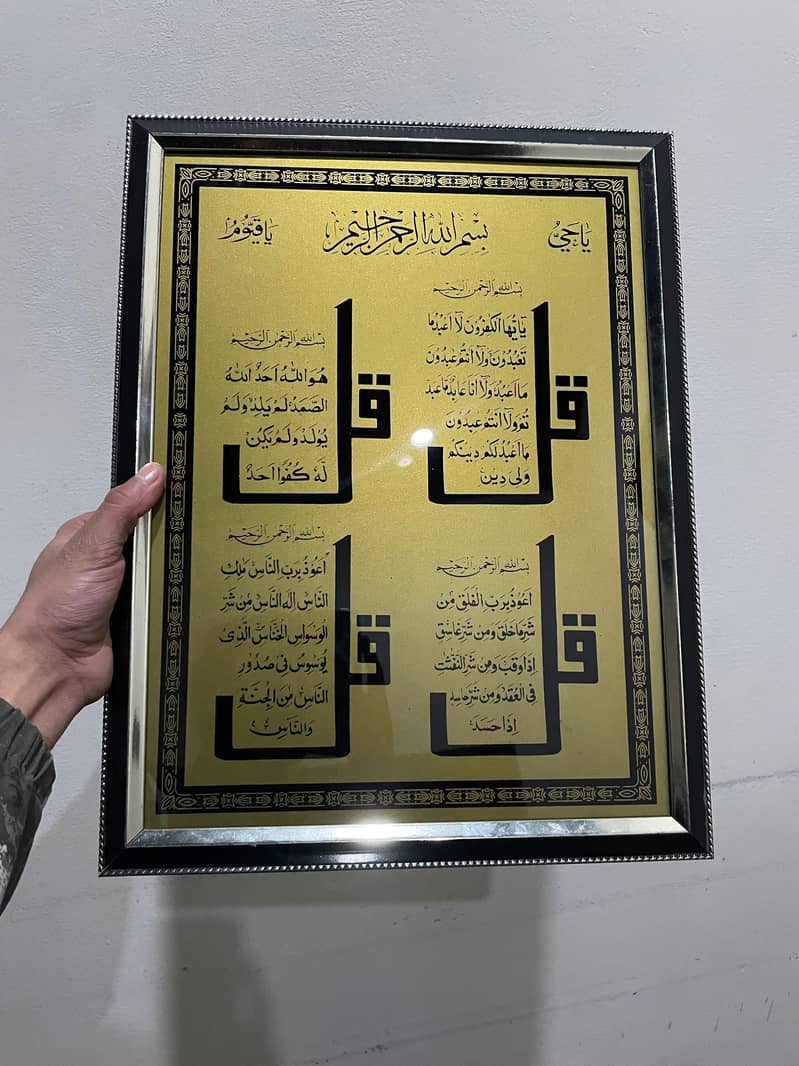 يَا حَيُّ بِسْمِ اللهِ الرَّحْمٰنِ الرَّحِيْمِ يَا قَيُّوْمُ
بِسْمِ اللهِ الرَّحْمٰنِ الرَّحِيْمِ
قل
يٰٓاَيُّهَا الْكٰفِرُوْنَ لَآ اَعْبُدُ مَا
تَعْبُدُوْنَ وَلَآ اَنْتُمْ عٰبِدُوْنَ
مَا اَعْبُدُ وَلَآ اَنَا عَابِدٌ مَّا عَبَد
تُّمْ وَلَآ اَنْتُمْ عٰبِدُوْنَ
مَا اَعْبُدُ لَكُمْ دِيْنُكُمْ
وَلِىَ دِيْنِ
بِسْمِ اللهِ الرَّحْمٰنِ الرَّحِيْمِ
قل
هُوَ اللهُ اَحَدٌ اَللهُ
الصَّمَدُ لَمْ يَلِدْ وَلَمْ
يُوْلَدْ وَلَمْ يَكُنْ
لَّهٗ كُفُوًا اَحَدٌ
بِسْمِ اللهِ الرَّحْمٰنِ الرَّحِيْمِ
قل
اَعُوْذُ بِرَبِّ الْفَلَقِ مِنْ
شَرِّ مَا خَلَقَ وَمِنْ شَرِّ غَاسِقٍ
اِذَا وَقَبَ وَمِنْ شَرِّ النَّفّٰثٰتِ
فِى الْعُقَدِ وَمِنْ شَرِّ حَاسِدٍ
اِذَا حَسَدَ
بِسْمِ اللهِ الرَّحْمٰنِ الرَّحِيْمِ
قل
اَعُوْذُ بِرَبِّ النَّاسِ مَلِكِ
النَّاسِ اِلٰهِ النَّاسِ مِنْ شَرِّ
الْوَسْوَاسِ الْخَنَّاسِ الَّذِىْ
يُوَسْوِسُ فِىْ صُدُوْرِ
النَّاسِ مِنَ الْجِنَّةِ
وَالنَّاسِ